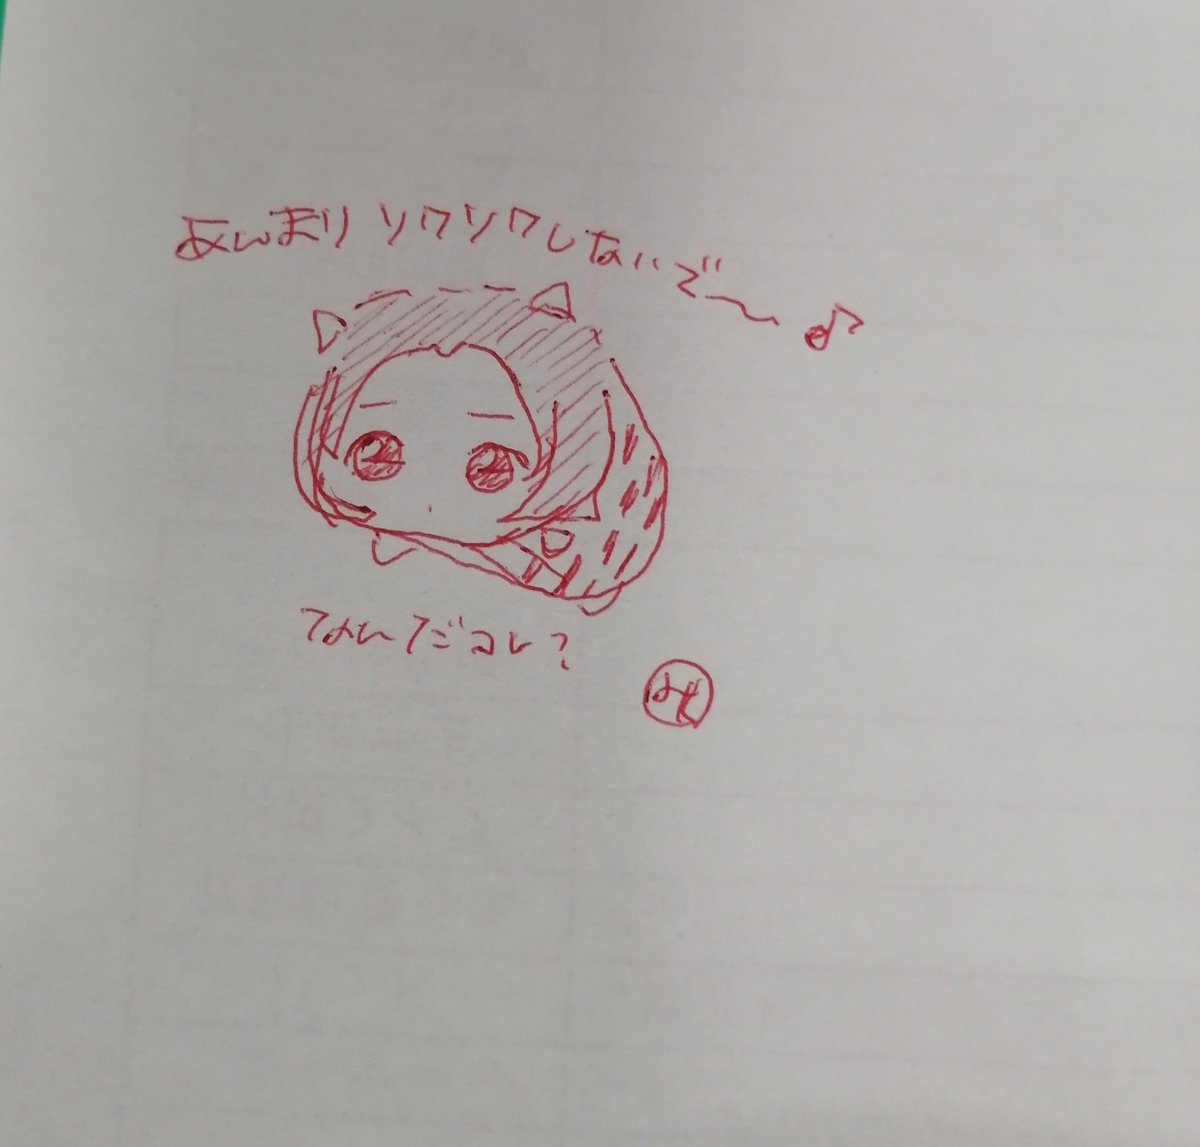 あんまりソワソワしないで〜♪
なんだコレ?